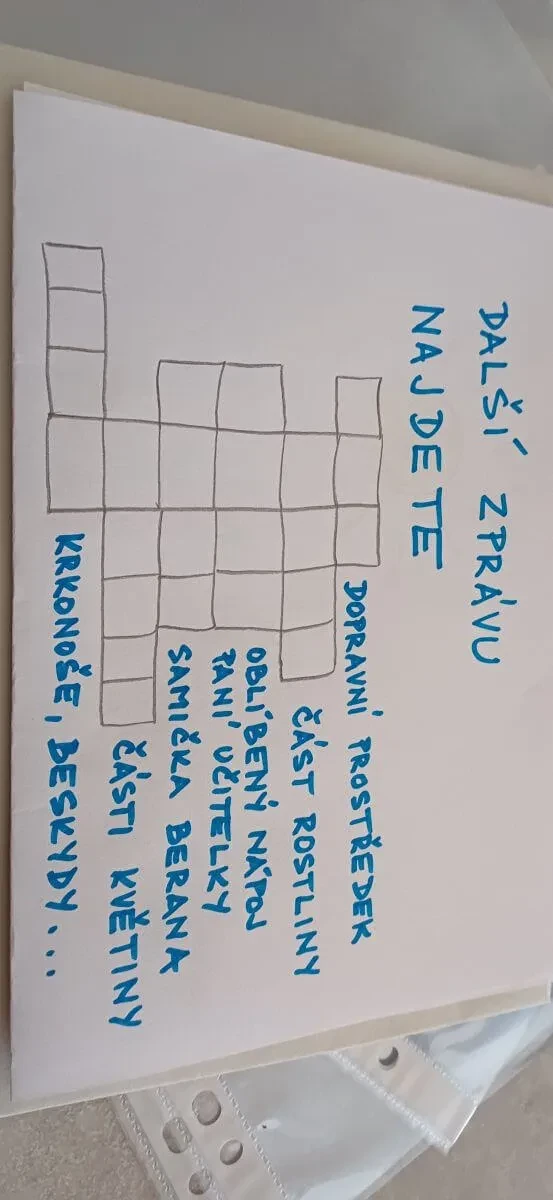 DALŠÍ ZPRÁVU
NAJDETE
DOPRAVNÍ PROSTŘEDEK
ČÁST ROSTLINY
OBLÍBENÝ NÁPOJ
PANÍ UČITELKY
SAMIČKA BERANA
ČÁSTI KVĚTINY
KRKONOŠE, BESKYDY...